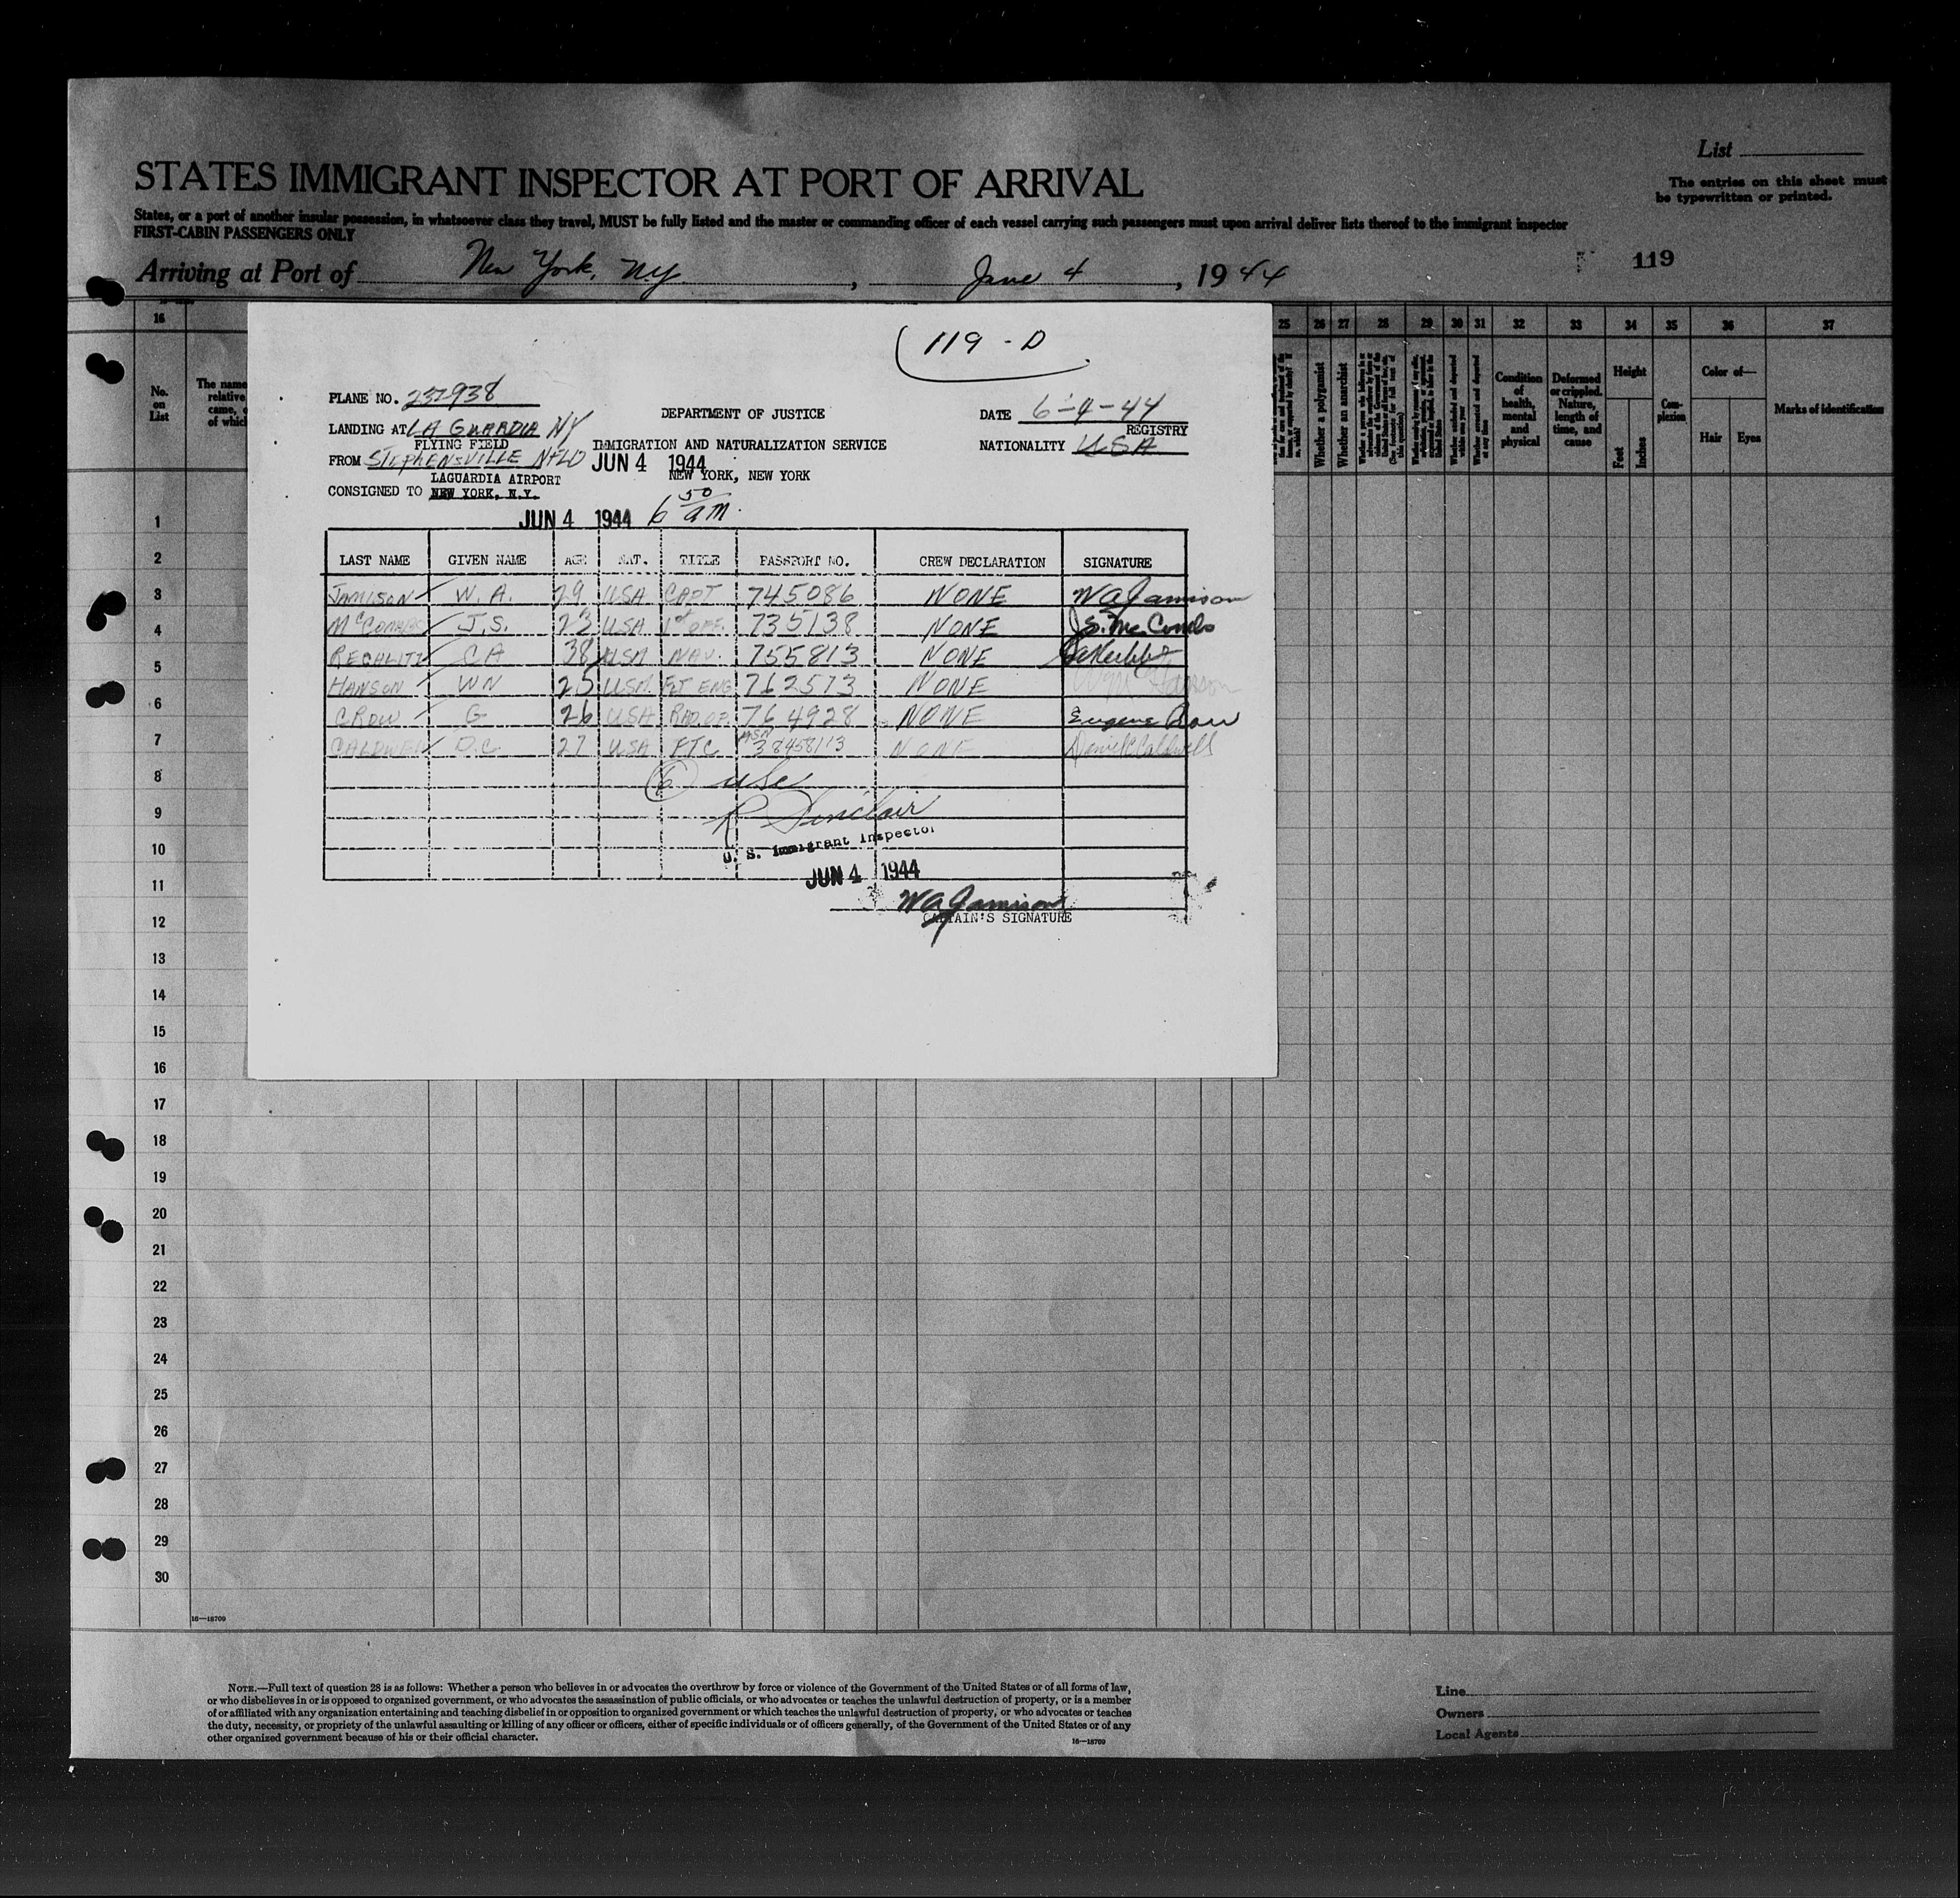 List
The entries on this sheet must
be typewritten or printed.
STATES IMMIGRANT INSPECTOR AT PORT OF ARRIVAL
States, or a port of another insular possession, in whatsoever class they travel, MUST be fully listed and the master or commanding officer of each vessel carrying such passengers must upon arrival deliver lists thereof to the immigrant inspector
FIRST-CABIN PASSENGERS ONLY
119
Arriving at Port of New York, N.Y. , June 4 , 1944
16 25 26 27 28 29 30 31 32 33 34 35 36 37
No. on List
The name
relative
came, o
of which
Whether a polygamist
Whether an anarchist
Condition of health, mental and physical
Deformed or crippled. Nature, length of time, and cause
Height
Feet Inches
Complexion
Color of—
Hair Eyes
Marks of identification
119 - D
PLANE NO.
DEPARTMENT OF JUSTICE
DATE 6-4-44
LANDING AT LA GUARDIA NY
REGISTRY
FLYING FIELD
IMMIGRATION AND NATURALIZATION SERVICE
NATIONALITY USA
FROM STEPHENSVILLE NFLD
JUN 4 1944
NEW YORK, NEW YORK
LAGUARDIA AIRPORT
CONSIGNED TO NEW YORK, N.Y.
JUN 4 1944 6 50 am.
LAST NAME GIVEN NAME AGE NAT. TITLE PASSPORT NO. CREW DECLARATION SIGNATURE
JAMISON W. A. 29 USA CAPT 745086 NONE W A Jamison
J.S. 23 USA 1st OFF. 735138 NONE J.S. McCombs
C A 38 USA NAV. 755813 NONE
HANSON W N 25 USA FLT ENG 762573 NONE Wm Hanson
CROW G 26 USA RAD. OP. 764928 NONE Eugene Crow
CALDWELL D.C. 27 USA FTC ASN 38458113 NONE Daniel C Caldwell
6 USC
R Sinclair
U. S. Immigrant Inspector
JUN 4 1944
W A Jamison
CAPTAIN'S SIGNATURE
1
2
3
4
5
6
7
8
9
10
11
12
13
14
15
16
17
18
19
20
21
22
23
24
25
26
27
28
29
30
16—18709
NOTE.—Full text of question 28 is as follows: Whether a person who believes in or advocates the overthrow by force or violence of the Government of the United States or of all forms of law,
or who disbelieves in or is opposed to organized government, or who advocates the assassination of public officials, or who advocates or teaches the unlawful destruction of property, or is a member
of or affiliated with any organization entertaining and teaching disbelief in or opposition to organized government or which teaches the unlawful destruction of property, or who advocates or teaches
the duty, necessity, or propriety of the unlawful assaulting or killing of any officer or officers, either of specific individuals or of officers generally, of the Government of the United States or of any
other organized government because of his or their official character.
16—18709
Line
Owners
Local Agents